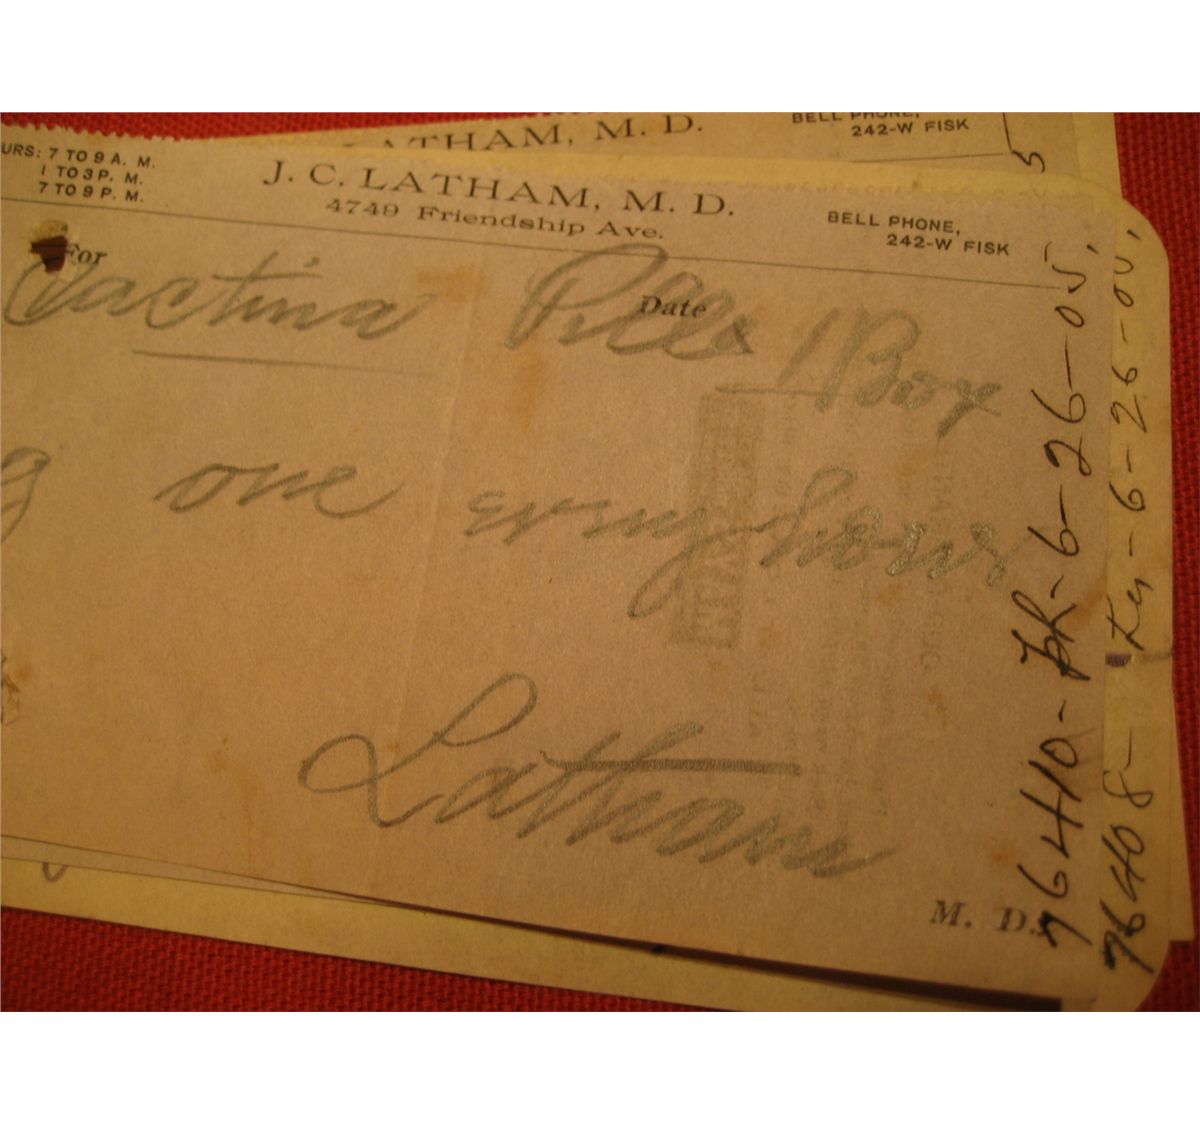 LATHAM, M. D.
BELL PHONE,
242-W FISK
5
URS: 7 TO 9 A. M.
1 TO 3 P. M.
7 TO 9 P. M.
J. C. LATHAM, M. D.
4749 Friendship Ave.
BELL PHONE,
242-W FISK
For
Date
Cactina Pills 1 Box
g one every hour
Latham
M. D.
76410- -6-26-05,
76408- -6-26-05,